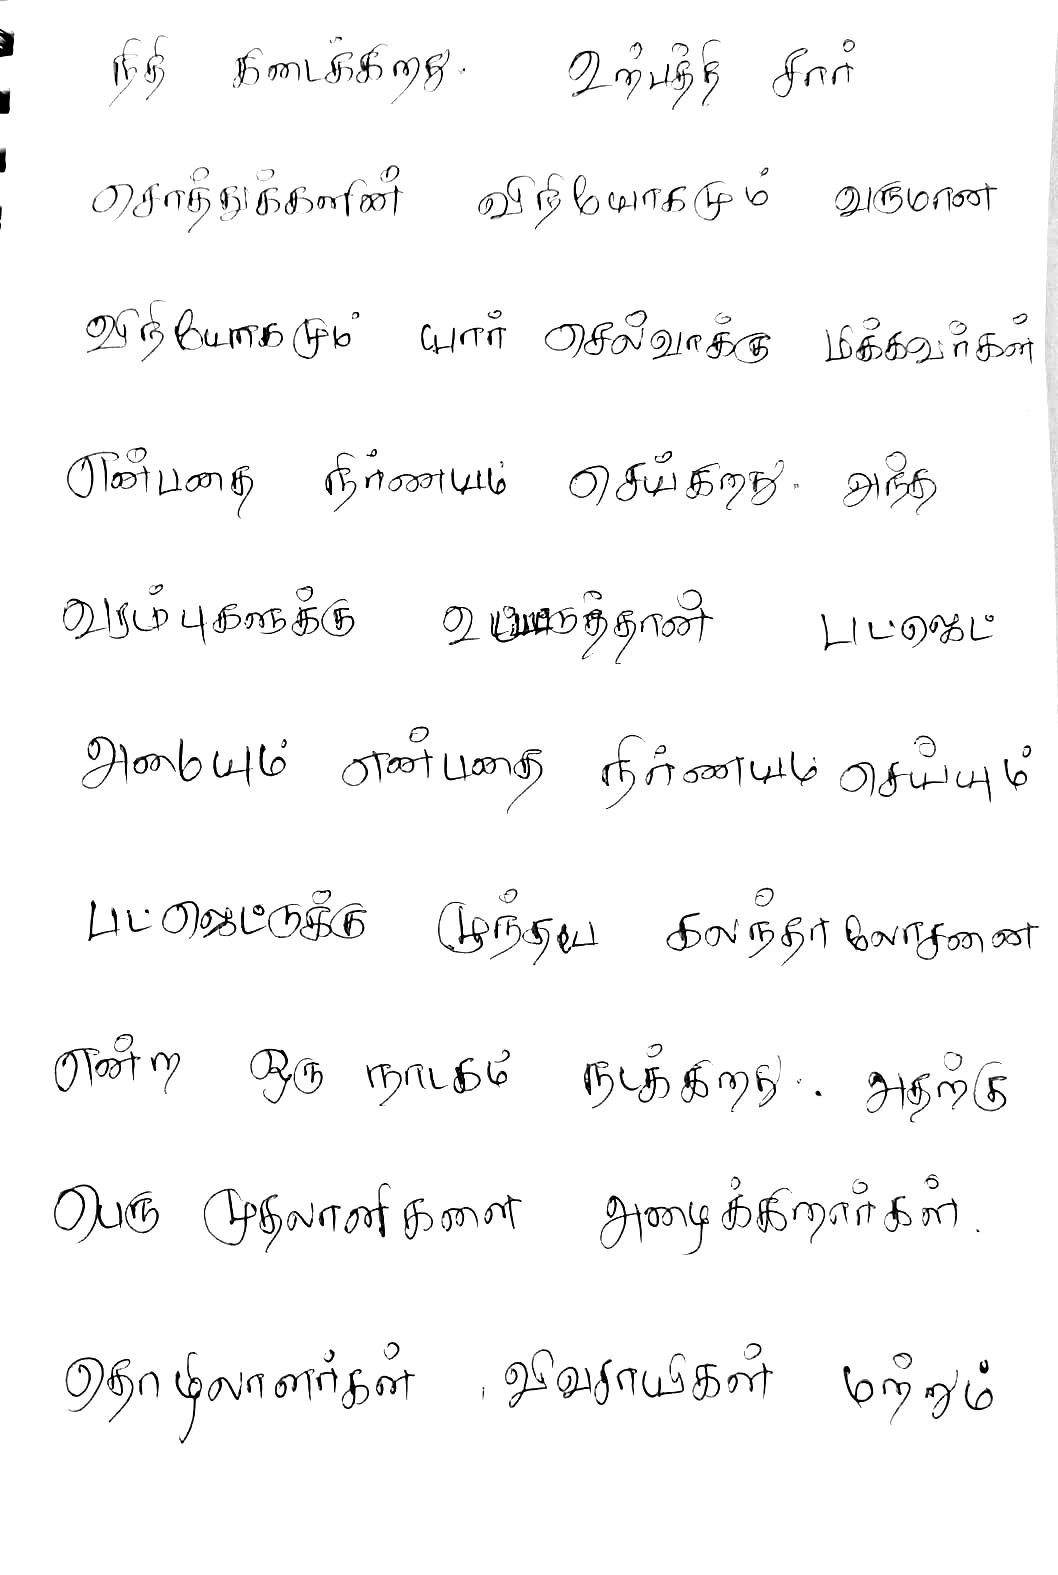 நிதி கிடைக்கிறது. உற்பத்தி சார்
சொத்துக்களின் விநியோகமும் வருமான
விநியோகமும் யார் செல்வாக்கு மிக்கவர்கள்
என்பதை நிர்ணயம் செய்கிறது. அந்த
வரம்புகளுக்கு உட்பட்டுத்தான் பட்ஜெட்
அமையும் என்பதை நிர்ணயம் செய்யும்
பட்ஜெட்டுக்கு முந்தய கலந்தாலோசனை
என்ற ஒரு நாடகம் நடக்கிறது. அதற்கு
பெரு முதலாளிகளை அழைக்கிறார்கள்.
தொழிலாளர்கள், விவசாயிகள் மற்றும்